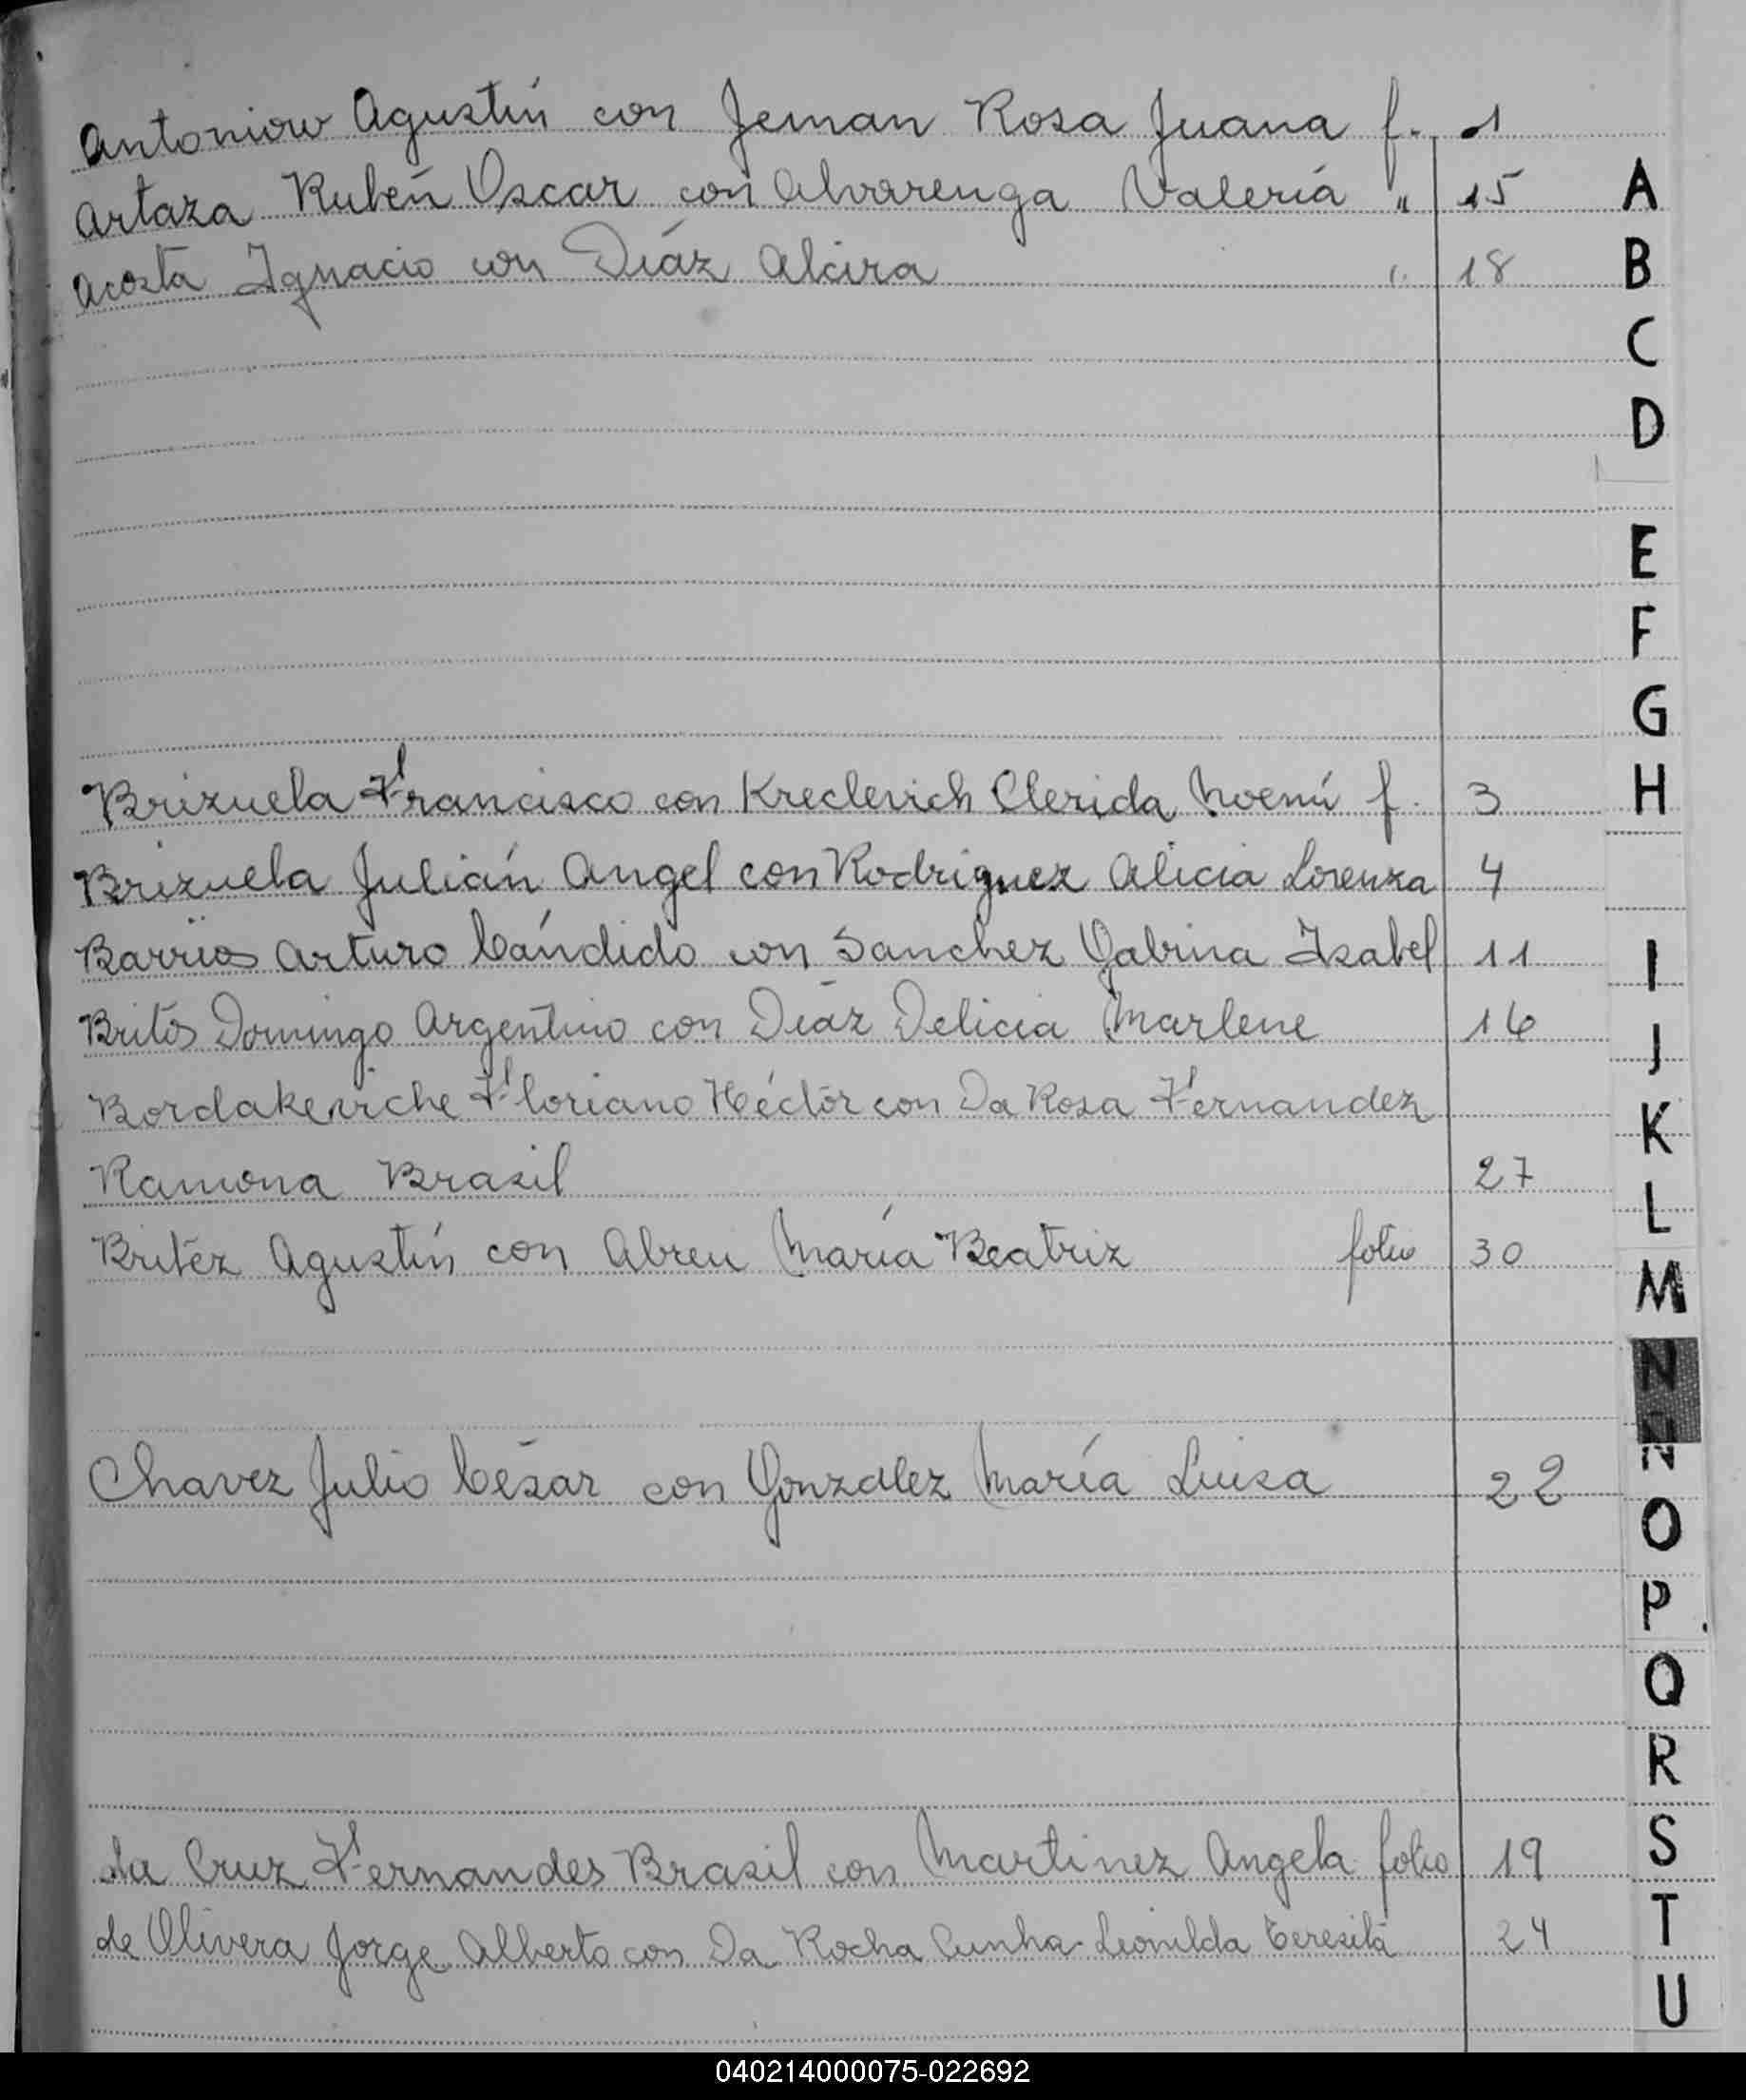 Antoniow Agustín con Jeman Rosa Juana f. 1
Artaza Rubén Oscar con Alvarenga Valeria " 15
Acosta Ignacio con Diáz Alcira " 18
Brizuela Francisco con Kreclevich Clerida Noemí f. 3
Brizuela Julián Angel con Rodriguez Alicia Lorenza 4
Barrios Arturo Cándido con Sanchez Gabina Isabel 11
Britos Domingo Argentino con Diáz Delicia Marlene 16
Bordakeviche Floriano Héctor con Da Rosa Fernandez
Ramona Brasil 27
Britez Agustín con Abreu María Beatriz folio 30
Chavez Julio César con Gonzalez María Luisa 22
da Cruz Fernandes Brasil con Martinez Angela folio 19
de Olivera Jorge Alberto con Da Rocha Cunha Leonilda Teresita 24
A
B
C
D
E
F
G
H
I
J
K
L
M
N
Ñ
O
P
Q
R
S
T
U
040214000075-022692